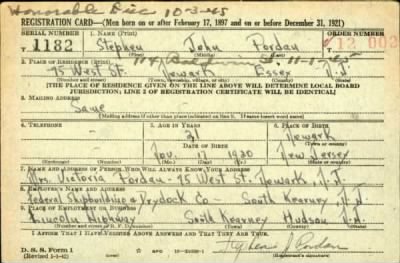 Honorable Disc 10-3-45
REGISTRATION CARD—(Men born on or after February 17, 1897 and on or before December 31, 1921)
SERIAL NUMBER 1. NAME (Print) ORDER NUMBER
S 1182 Stephen John Pordan 12 002
114 Baldwin 11-1-45
2. PLACE OF RESIDENCE (Print)
75 West St. Newark Essex N.J.
(Number and street) (Town, township, village, or city) (County) (State)
[THE PLACE OF RESIDENCE GIVEN ON THE LINE ABOVE WILL DETERMINE LOCAL BOARD
JURISDICTION; LINE 2 OF REGISTRATION CERTIFICATE WILL BE IDENTICAL]
3. MAILING ADDRESS
Same
[Mailing address if other than place indicated on line 2. If same insert word same]
4. TELEPHONE 5. AGE IN YEARS 6. PLACE OF BIRTH
21 Newark
DATE OF BIRTH (Town or county)
Nov. 17 1920 New Jersey
(Mo.) (Day) (Yr.) (State or country)
7. NAME AND ADDRESS OF PERSON WHO WILL ALWAYS KNOW YOUR ADDRESS
Mrs. Victoria Pordan - 75 West St. Newark, N.J.
8. EMPLOYER'S NAME AND ADDRESS
Federal Shipbuilding & Drydock Co - South Kearney N.J.
9. PLACE OF EMPLOYMENT OR BUSINESS
Lincoln Highway South Kearney Hudson N.J.
(Number and street or R. F. D. number) (Town) (County) (State)
I AFFIRM THAT I HAVE VERIFIED ABOVE ANSWERS AND THAT THEY ARE TRUE.
D. S. S. Form 1
(Revised 1-1-42) (over)
Stephen J Pordan